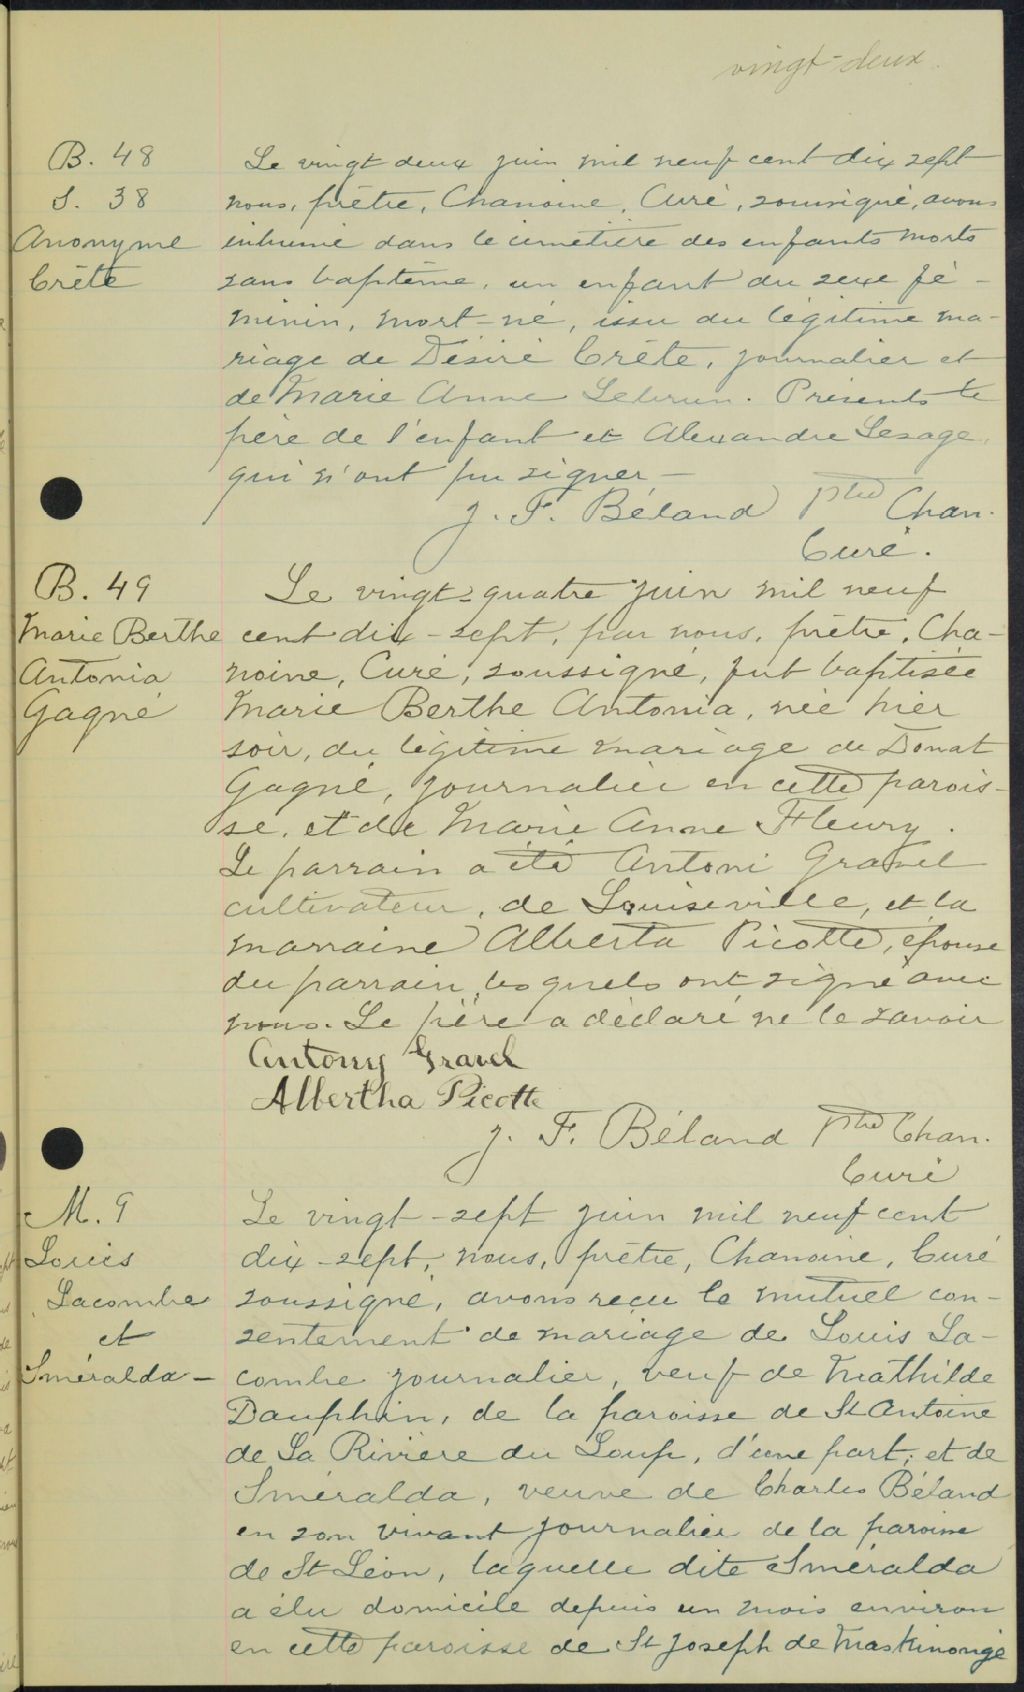 vingt-deux.
B. 48
S. 38
Anonyme
Crête
Le vingt deux juin mil neuf cent dix sept
nous, prêtre, Chanoine, Curé, soussigné, avons
inhumé dans le cimetière des enfants morts
sans baptême, un enfant du sexe fé-
minin, mort-né, issu du légitime ma-
riage de Désiré Crête, journalier et
de Marie Anne Lebrun. Présents le
père de l'enfant et Alexandre Lesage,
qui n'ont pu signer-
J. F. Béland Ptre Chan.
Curé.
B. 49
Marie Berthe
Antonia
Gagné
Le vingt-quatre juin mil neuf
cent dix-sept, par nous, prêtre, Cha-
noine, Curé, soussigné, fut baptisée
Marie Berthe Antonia, née hier
soir, du légitime mariage de Donat
Gagné, journalier en cette parois-
se, et de Marie Anne Fleury.
Le parrain a été Antoni Gravel
cultivateur, de Louiseville, et la
marraine Alberta Picotte, épouse
du parrain, lesquels ont signé avec
nous. Le père a déclaré ne le savoir
Antony Gravel
Albertha Picotte
J. F. Béland Ptre Chan.
Curé
M. 9
Louis
Lacombe
et
Sméralda -
Le vingt-sept juin mil neuf cent
dix-sept, nous, prêtre, Chanoine, Curé
soussigné, avons reçu le mutuel con-
sentement de mariage de Louis La-
combe journalier, veuf de Mathilde
Dauphin, de la paroisse de St Antoine
de La Rivière du Loup, d'une part; et de
Sméralda, veuve de Charles Béland
en son vivant journalier de la paroisse
de St Léon, laquelle dite Sméralda
a élu domicile depuis un mois environ
en cette paroisse de St Joseph de Maskinongé